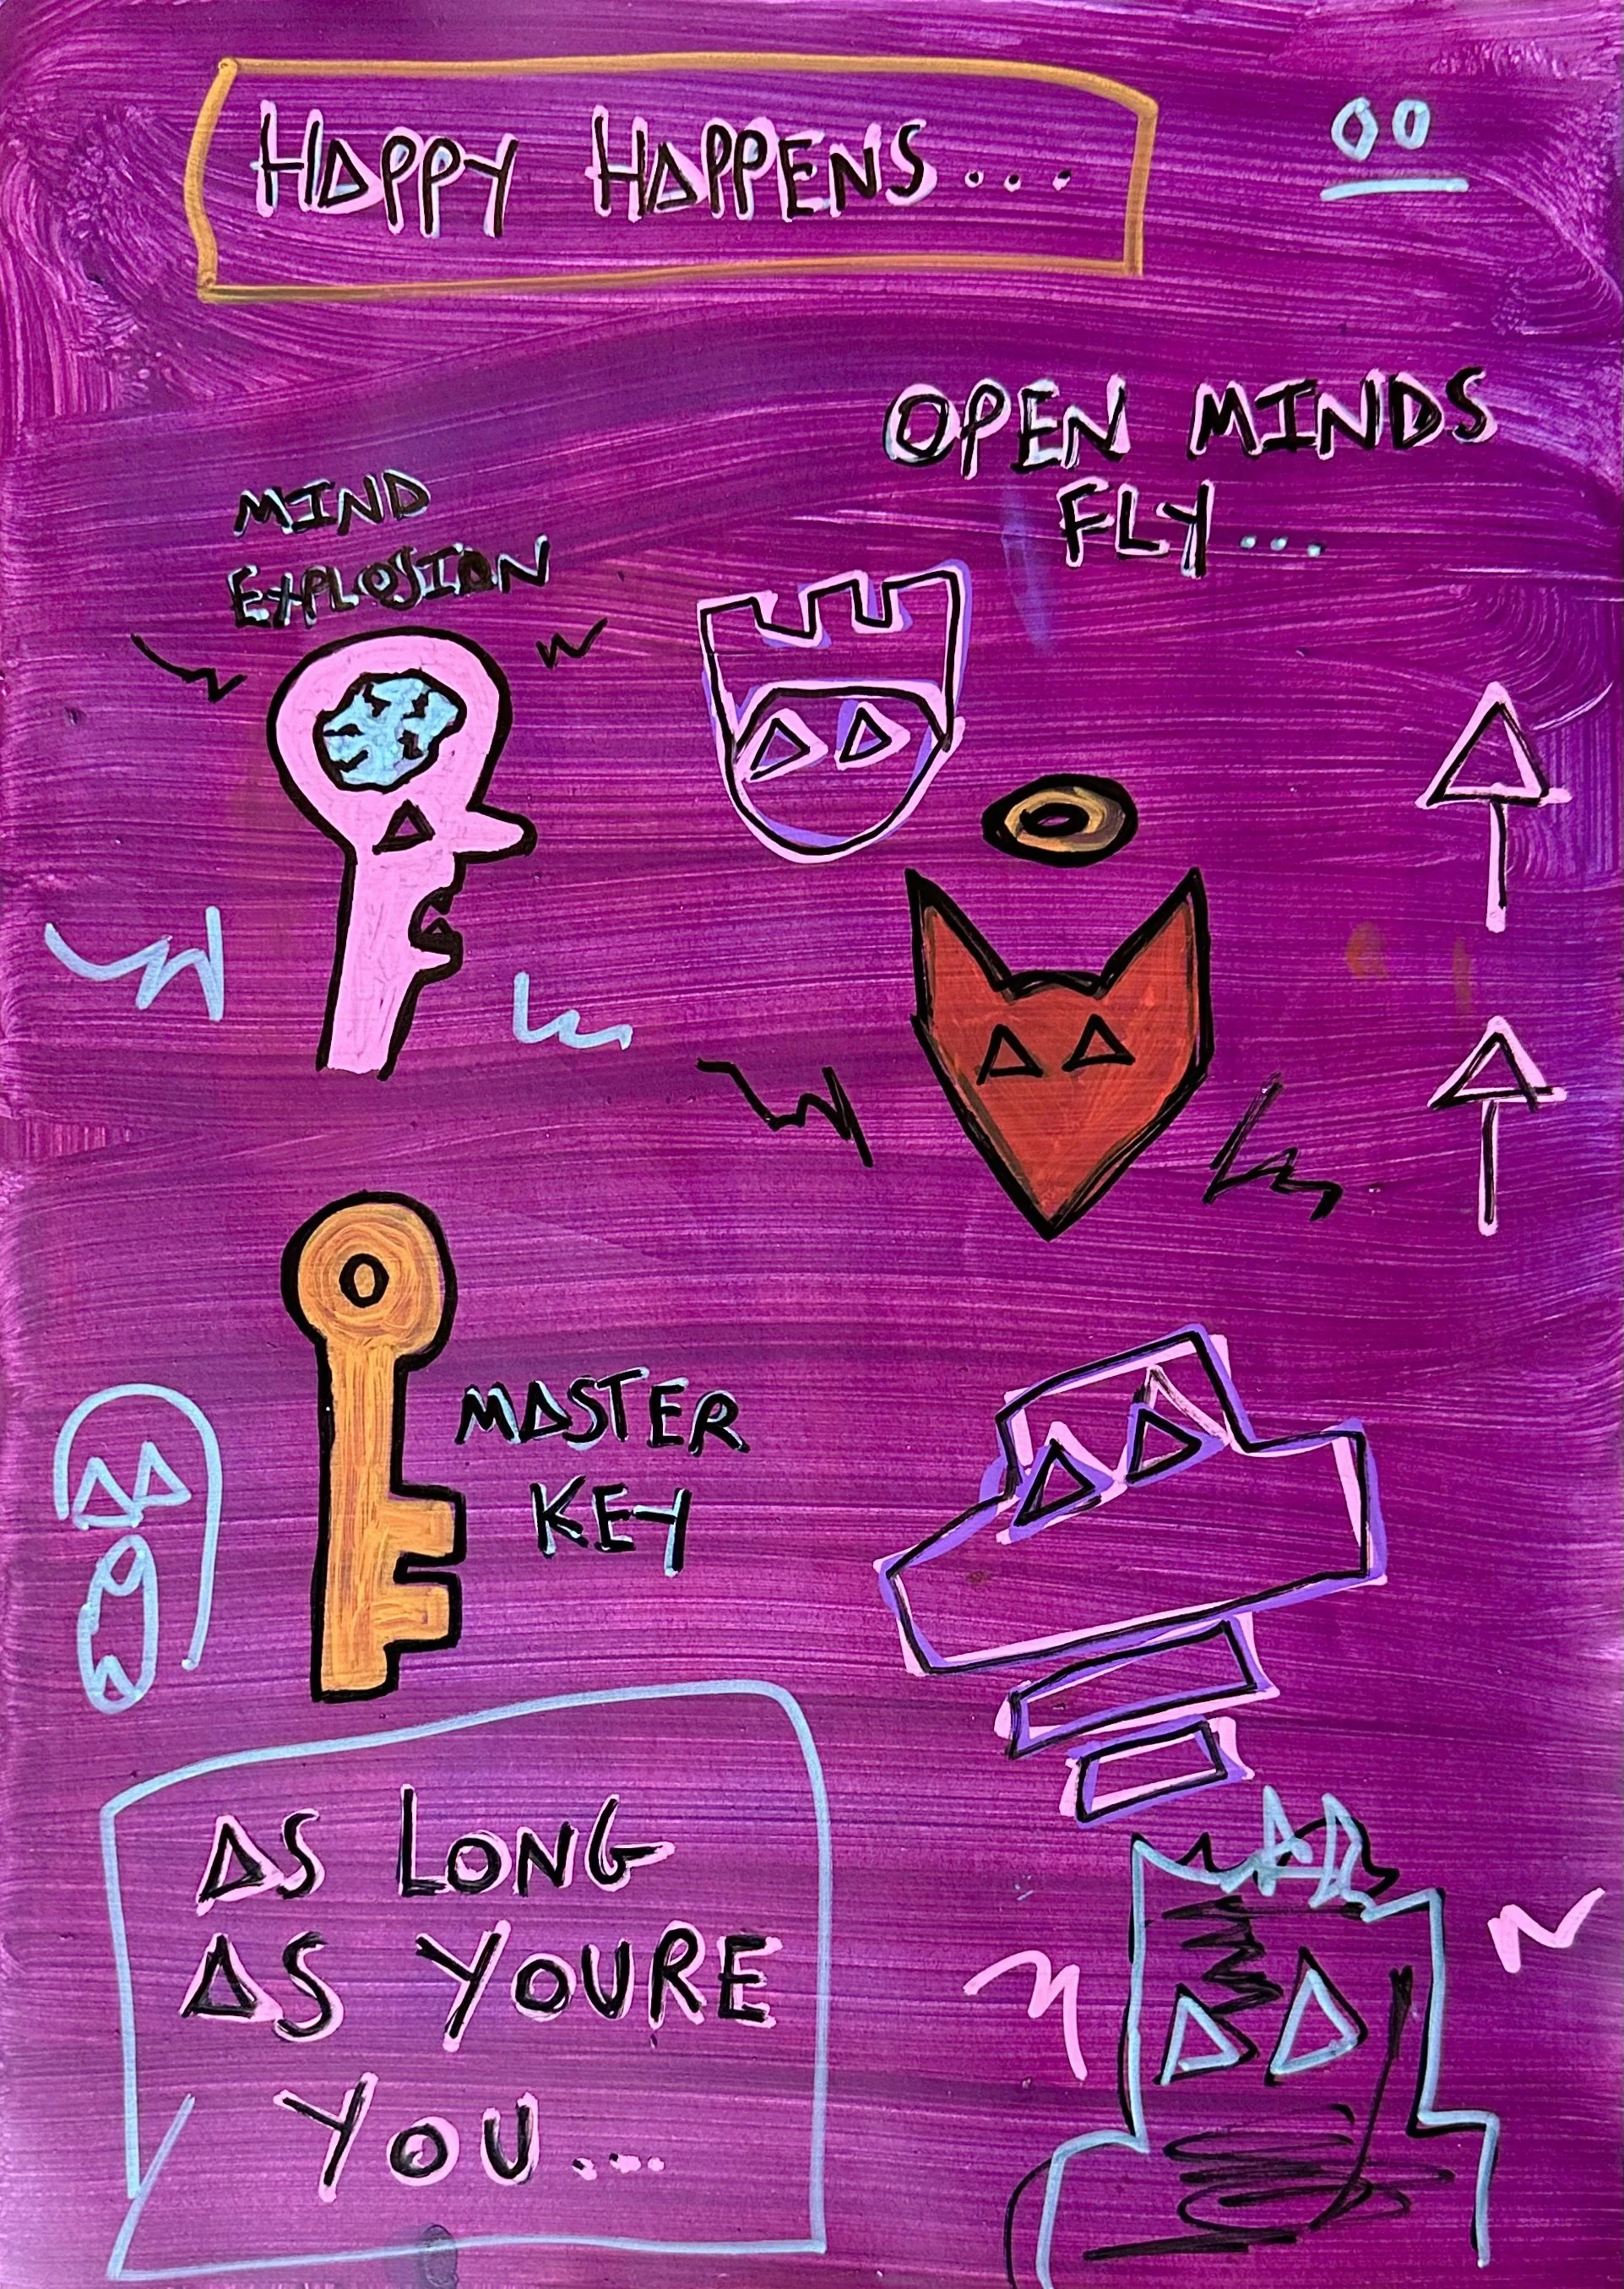 HAPPY HAPPENS....
OPEN MINDS
FLY...
MIND
EXPLOSION
MASTER
KEY
AS LONG
AS YOURE
YOU....